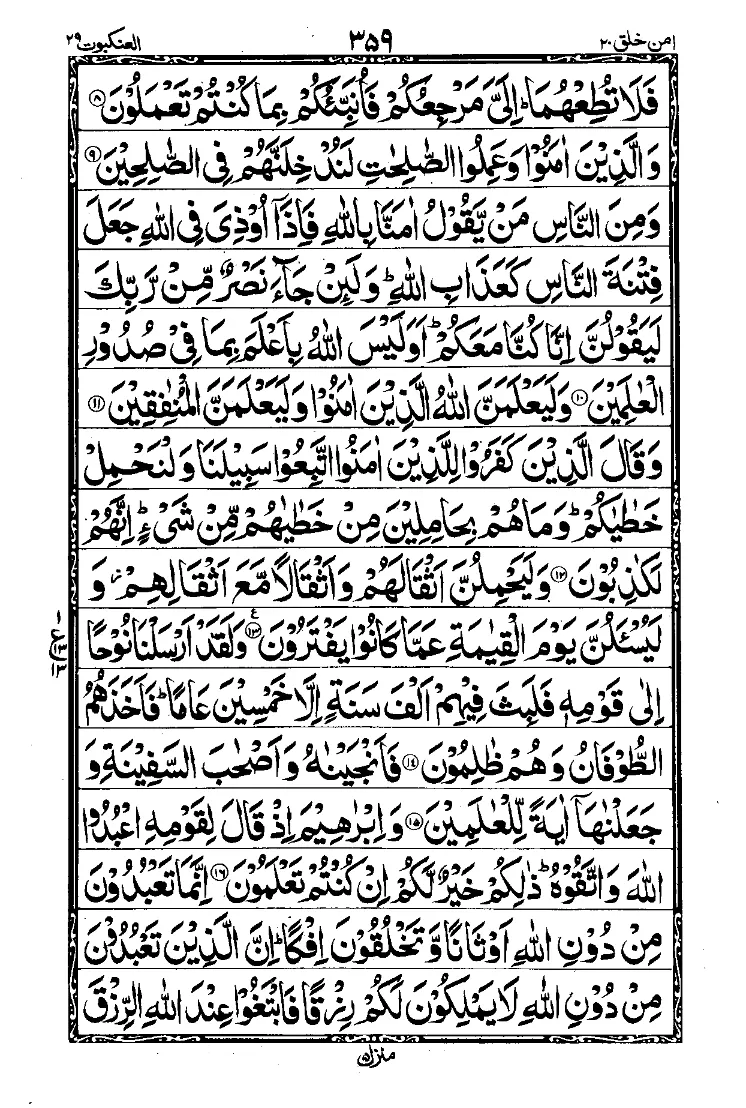 امن خلق ۲۰ ۳۵۹ العنكبوت ۲۹
فَلَا تُطِعْهُمَا ؕ اِلَیَّ مَرْجِعُكُمْ فَاُنَبِّئُكُمْ بِمَا كُنْتُمْ تَعْمَلُوْنَ ۸
وَالَّذِیْنَ اٰمَنُوْا وَعَمِلُوا الصّٰلِحٰتِ لَنُدْخِلَنَّهُمْ فِی الصّٰلِحِیْنَ ۹
وَمِنَ النَّاسِ مَنْ یَّقُوْلُ اٰمَنَّا بِاللّٰهِ فَاِذَاۤ اُوْذِیَ فِی اللّٰهِ جَعَلَ
فِتْنَةَ النَّاسِ كَعَذَابِ اللّٰهِ ؕ وَلَئِنْ جَآءَ نَصْرٌ مِّنْ رَّبِّكَ
لَیَقُوْلُنَّ اِنَّا كُنَّا مَعَكُمْ ؕ اَوَلَیْسَ اللّٰهُ بِاَعْلَمَ بِمَا فِیْ صُدُوْرِ
الْعٰلَمِیْنَ ۱۰ وَلَیَعْلَمَنَّ اللّٰهُ الَّذِیْنَ اٰمَنُوْا وَلَیَعْلَمَنَّ الْمُنٰفِقِیْنَ ۱۱
وَقَالَ الَّذِیْنَ كَفَرُوْا لِلَّذِیْنَ اٰمَنُوا اتَّبِعُوْا سَبِیْلَنَا وَلْنَحْمِلْ
خَطٰیٰكُمْ ؕ وَمَا هُمْ بِحَامِلِیْنَ مِنْ خَطٰیٰهُمْ مِّنْ شَیْءٍ ؕ اِنَّهُمْ
لَكٰذِبُوْنَ ۱۲ وَلَیَحْمِلُنَّ اَثْقَالَهُمْ وَاَثْقَالًا مَّعَ اَثْقَالِهِمْ ؗ وَ
لَیُسْـَٔلُنَّ یَوْمَ الْقِیٰمَةِ عَمَّا كَانُوْا یَفْتَرُوْنَ ۱۳ ع وَلَقَدْ اَرْسَلْنَا نُوْحًا
۱
ع ۱۳
۱۳
اِلٰی قَوْمِهٖ فَلَبِثَ فِیْهِمْ اَلْفَ سَنَةٍ اِلَّا خَمْسِیْنَ عَامًا ؕ فَاَخَذَهُمُ
الطُّوْفَانُ وَهُمْ ظٰلِمُوْنَ ۱۴ فَاَنْجَیْنٰهُ وَاَصْحٰبَ السَّفِیْنَةِ وَ
جَعَلْنٰهَاۤ اٰیَةً لِّلْعٰلَمِیْنَ ۱۵ وَاِبْرٰهِیْمَ اِذْ قَالَ لِقَوْمِهِ اعْبُدُوا
اللّٰهَ وَاتَّقُوْهُ ؕ ذٰلِكُمْ خَیْرٌ لَّكُمْ اِنْ كُنْتُمْ تَعْلَمُوْنَ ۱۶ اِنَّمَا تَعْبُدُوْنَ
مِنْ دُوْنِ اللّٰهِ اَوْثَانًا وَّتَخْلُقُوْنَ اِفْكًا ؕ اِنَّ الَّذِیْنَ تَعْبُدُوْنَ
مِنْ دُوْنِ اللّٰهِ لَا یَمْلِكُوْنَ لَكُمْ رِزْقًا فَابْتَغُوْا عِنْدَ اللّٰهِ الرِّزْقَ
منزل ۵